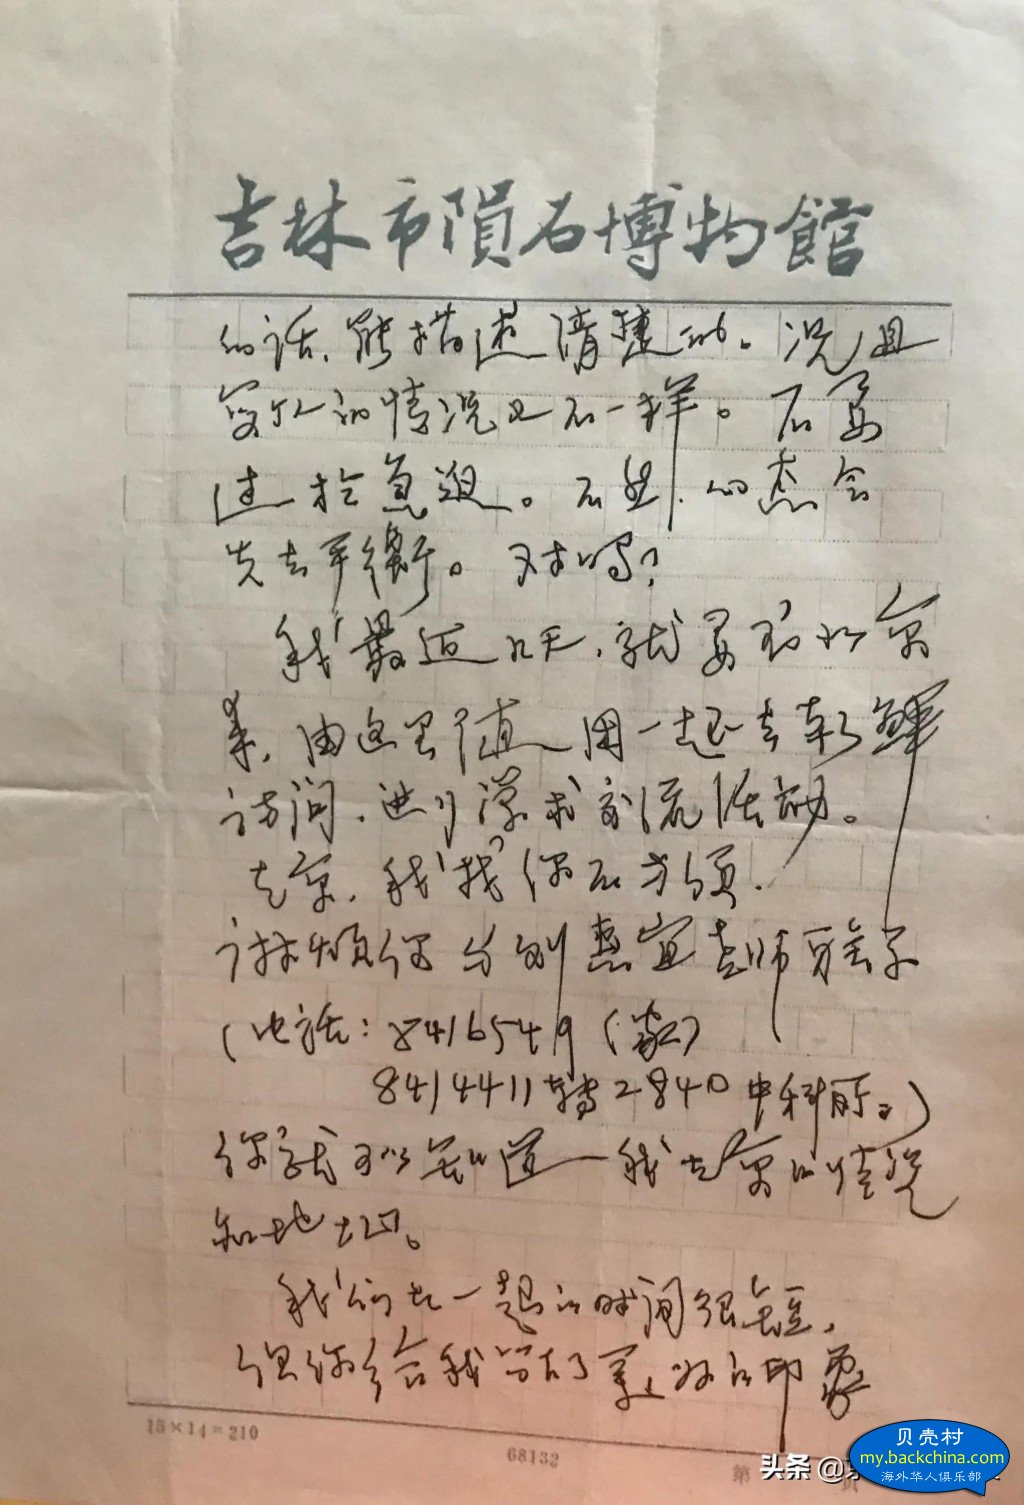 吉林市隕石博物館
的话,能描述清楚的。况且
每个人的情况又不一样。不要
过于急躁。不然,心态会
失去平衡。对吗?
我最近几天,就要到北京
来,由这里 一起去朝鲜
访问,进行学术交流活动。
去京,我找你不方便,
麻烦你与刘 宜老师联系
(电话: 8416549 (家)
8414411转2840 中科所。)
你就可以知道一我去京的情况
和地址。
我们在一起的时间很短,
但你给我留下了美好的印象
15×14=210
68132
第
头条 @
贝壳村
my.backchina.com
海外华人俱乐部